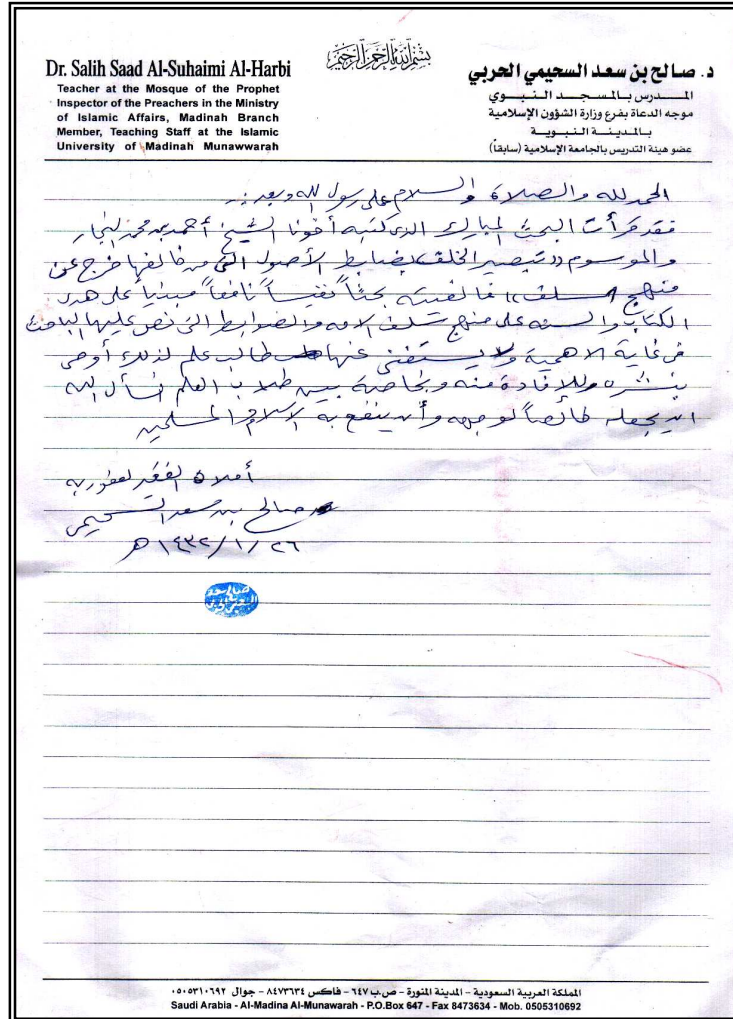 بسم الله الرحمن الرحيم
Dr. Salih Saad Al-Suhaimi Al-Harbi
Teacher at the Mosque of the Prophet
Inspector of the Preachers in the Ministry
of Islamic Affairs, Madinah Branch
Member, Teaching Staff at the Islamic
University of Madinah Munawwarah
د. صالح بن سعد السحيمي الحربي
المدرس بالمسجد النبوي
موجه الدعاة بفرع وزارة الشؤون الإسلامية
بالمدينة النبوية
عضو هيئة التدريس بالجامعة الإسلامية (سابقاً)
الحمد لله والصلاة والسلام على رسول الله وبعد..
فقد قرأت البحث المبارك الذي كتبه أخونا الشيخ أحمد بن محمد النجار
والموسوم ((تبصير الخلف بضابط الأصول التي من خالفها خرج عن
منهج السلف)) فألفيته بحثاً نفيساً نافعاً مبنياً على هدى
الكتاب والسنه على منهج سلف الامه والضوابط التي نص عليها الباحث
في غاية الاهمية ولا يستغني عنها طالب علم لذلك أوصى
بنشره وللافادة منه وبخاصة بين طلاب العلم نسأل الله
ان يجعله خالصاً لوجهه وأن ينفع به الاسلام المسلمين
أملاه الفقير لعفو ربه
صالح بن سعد السحيمي
٢٦/ ١/ ١٤٣٢ هـ
المملكة العربية السعودية - المدينة المنورة - ص.ب ٦٤٧ - فاكس ٨٤٧٣٦٣٤ - جوال ٠٥٠٥٣١٠٦٩٢
Saudi Arabia - Al-Madina Al-Munawarah - P.O.Box 647 - Fax 8473634 - Mob. 0505310692